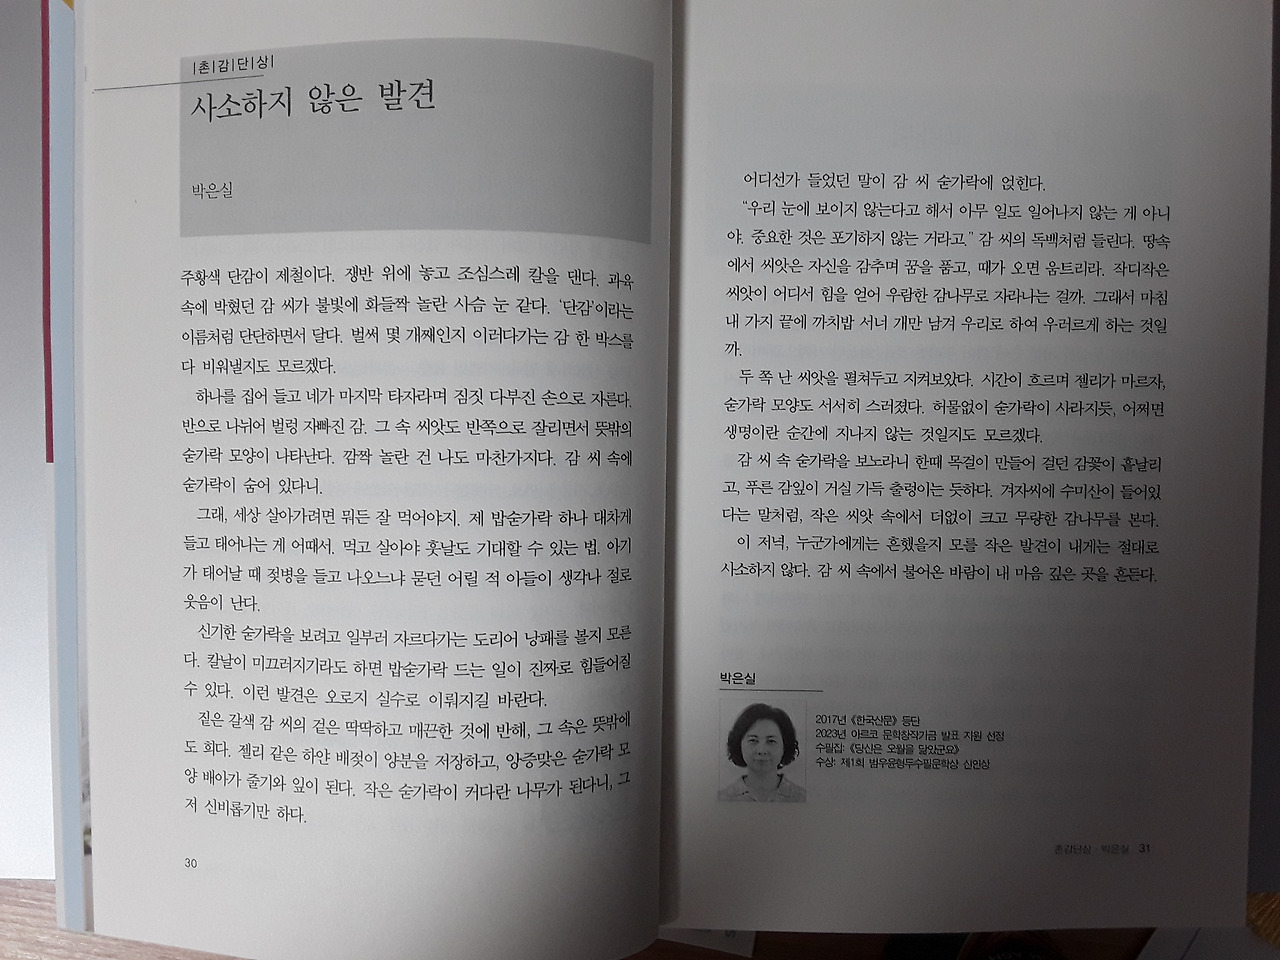 |촌|감|단|상|
사소하지 않은 발견
박은실
주황색 단감이 제철이다. 쟁반 위에 놓고 조심스레 칼을 댄다. 과육
속에 박혔던 감 씨가 불빛에 화들짝 놀란 사슴 눈 같다. ‘단감’이라는
이름처럼 단단하면서 달다. 벌써 몇 개째인지 이러다가는 감 한 박스를
다 비워낼지도 모르겠다.
하나를 집어 들고 네가 마지막 타자라며 짐짓 다부진 손으로 자른다.
반으로 나뉘어 벌렁 자빠진 감. 그 속 씨앗도 반쪽으로 잘리면서 뜻밖의
숟가락 모양이 나타난다. 깜짝 놀란 건 나도 마찬가지다. 감 씨 속에
숟가락이 숨어 있다니.
그래, 세상 살아가려면 뭐든 잘 먹어야지. 제 밥숟가락 하나 대차게
들고 태어나는 게 어때서. 먹고 살아야 훗날도 기대할 수 있는 법. 아기
가 태어날 때 젖병을 들고 나오느냐 묻던 어릴 적 아들이 생각나 절로
웃음이 난다.
신기한 숟가락을 보려고 일부러 자르다가는 도리어 낭패를 볼지 모른
다. 칼날이 미끄러지기라도 하면 밥숟가락 드는 일이 진짜로 힘들어질
수 있다. 이런 발견은 오로지 실수로 이뤄지길 바란다.
짙은 갈색 감 씨의 겉은 딱딱하고 매끈한 것에 반해, 그 속은 뜻밖에
도 희다. 젤리 같은 하얀 배젖이 양분을 저장하고, 앙증맞은 숟가락 모
양 배아가 줄기와 잎이 된다. 작은 숟가락이 커다란 나무가 된다니, 그
저 신비롭기만 하다.
30
어디선가 들었던 말이 감 씨 숟가락에 얹힌다.
“우리 눈에 보이지 않는다고 해서 아무 일도 일어나지 않는 게 아니
야. 중요한 것은 포기하지 않는 거라고.” 감 씨의 독백처럼 들린다. 땅속
에서 씨앗은 자신을 감추며 꿈을 품고, 때가 오면 움트리라. 작디작은
씨앗이 어디서 힘을 얻어 우람한 감나무로 자라나는 걸까. 그래서 마침
내 가지 끝에 까치밥 서너 개만 남겨 우리로 하여 우러르게 하는 것일
까.
두 쪽 난 씨앗을 펼쳐두고 지켜보았다. 시간이 흐르며 젤리가 마르자,
숟가락 모양도 서서히 스러졌다. 허물없이 숟가락이 사라지듯, 어쩌면
생명이란 순간에 지나지 않는 것일지도 모르겠다.
감 씨 속 숟가락을 보노라니 한때 목걸이 만들어 걸던 감꽃이 흩날리
고, 푸른 감잎이 거실 가득 출렁이는 듯하다. 겨자씨에 수미산이 들어있
다는 말처럼, 작은 씨앗 속에서 더없이 크고 무량한 감나무를 본다.
이 저녁, 누군가에게는 흔했을지 모를 작은 발견이 내게는 절대로
사소하지 않다. 감 씨 속에서 불어온 바람이 내 마음 깊은 곳을 흔든다.
박은실
2017년 《한국산문》 등단
2023년 아르코 문학창작기금 발표 지원 선정
수필집: 《당신은 오월을 닮았군요》
수상: 제1회 범우윤형두수필문학상 신인상
촌감단상 · 박은실 31